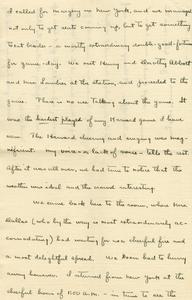 I called for                     New York, and we managed
not only to get seats coming up, but to get something
                     a mostly extraordinary double-good-fortune
for game-day. We met Henry and Dorothy Abbott
and             at the station, and proceeded to the
game. There is no use talking about the game. It
was the hardest played of any Harvard game I have
seen. The Harvard cheering and singing was mag-
nificent. My voice - a lack of voice - tells the rest.
After it was all over, we had time to notice that the
weather was ideal and the crowd interesting.
We came back here to the room, where Mrs
Dallas (who by the way is most extraordinarily ac-
comodating) had waiting for us a cheerful fire and
a most delightful spread. We               had to hurry
away however. I returned from New York at the
cheerful hour of       a.m. - in time to see the